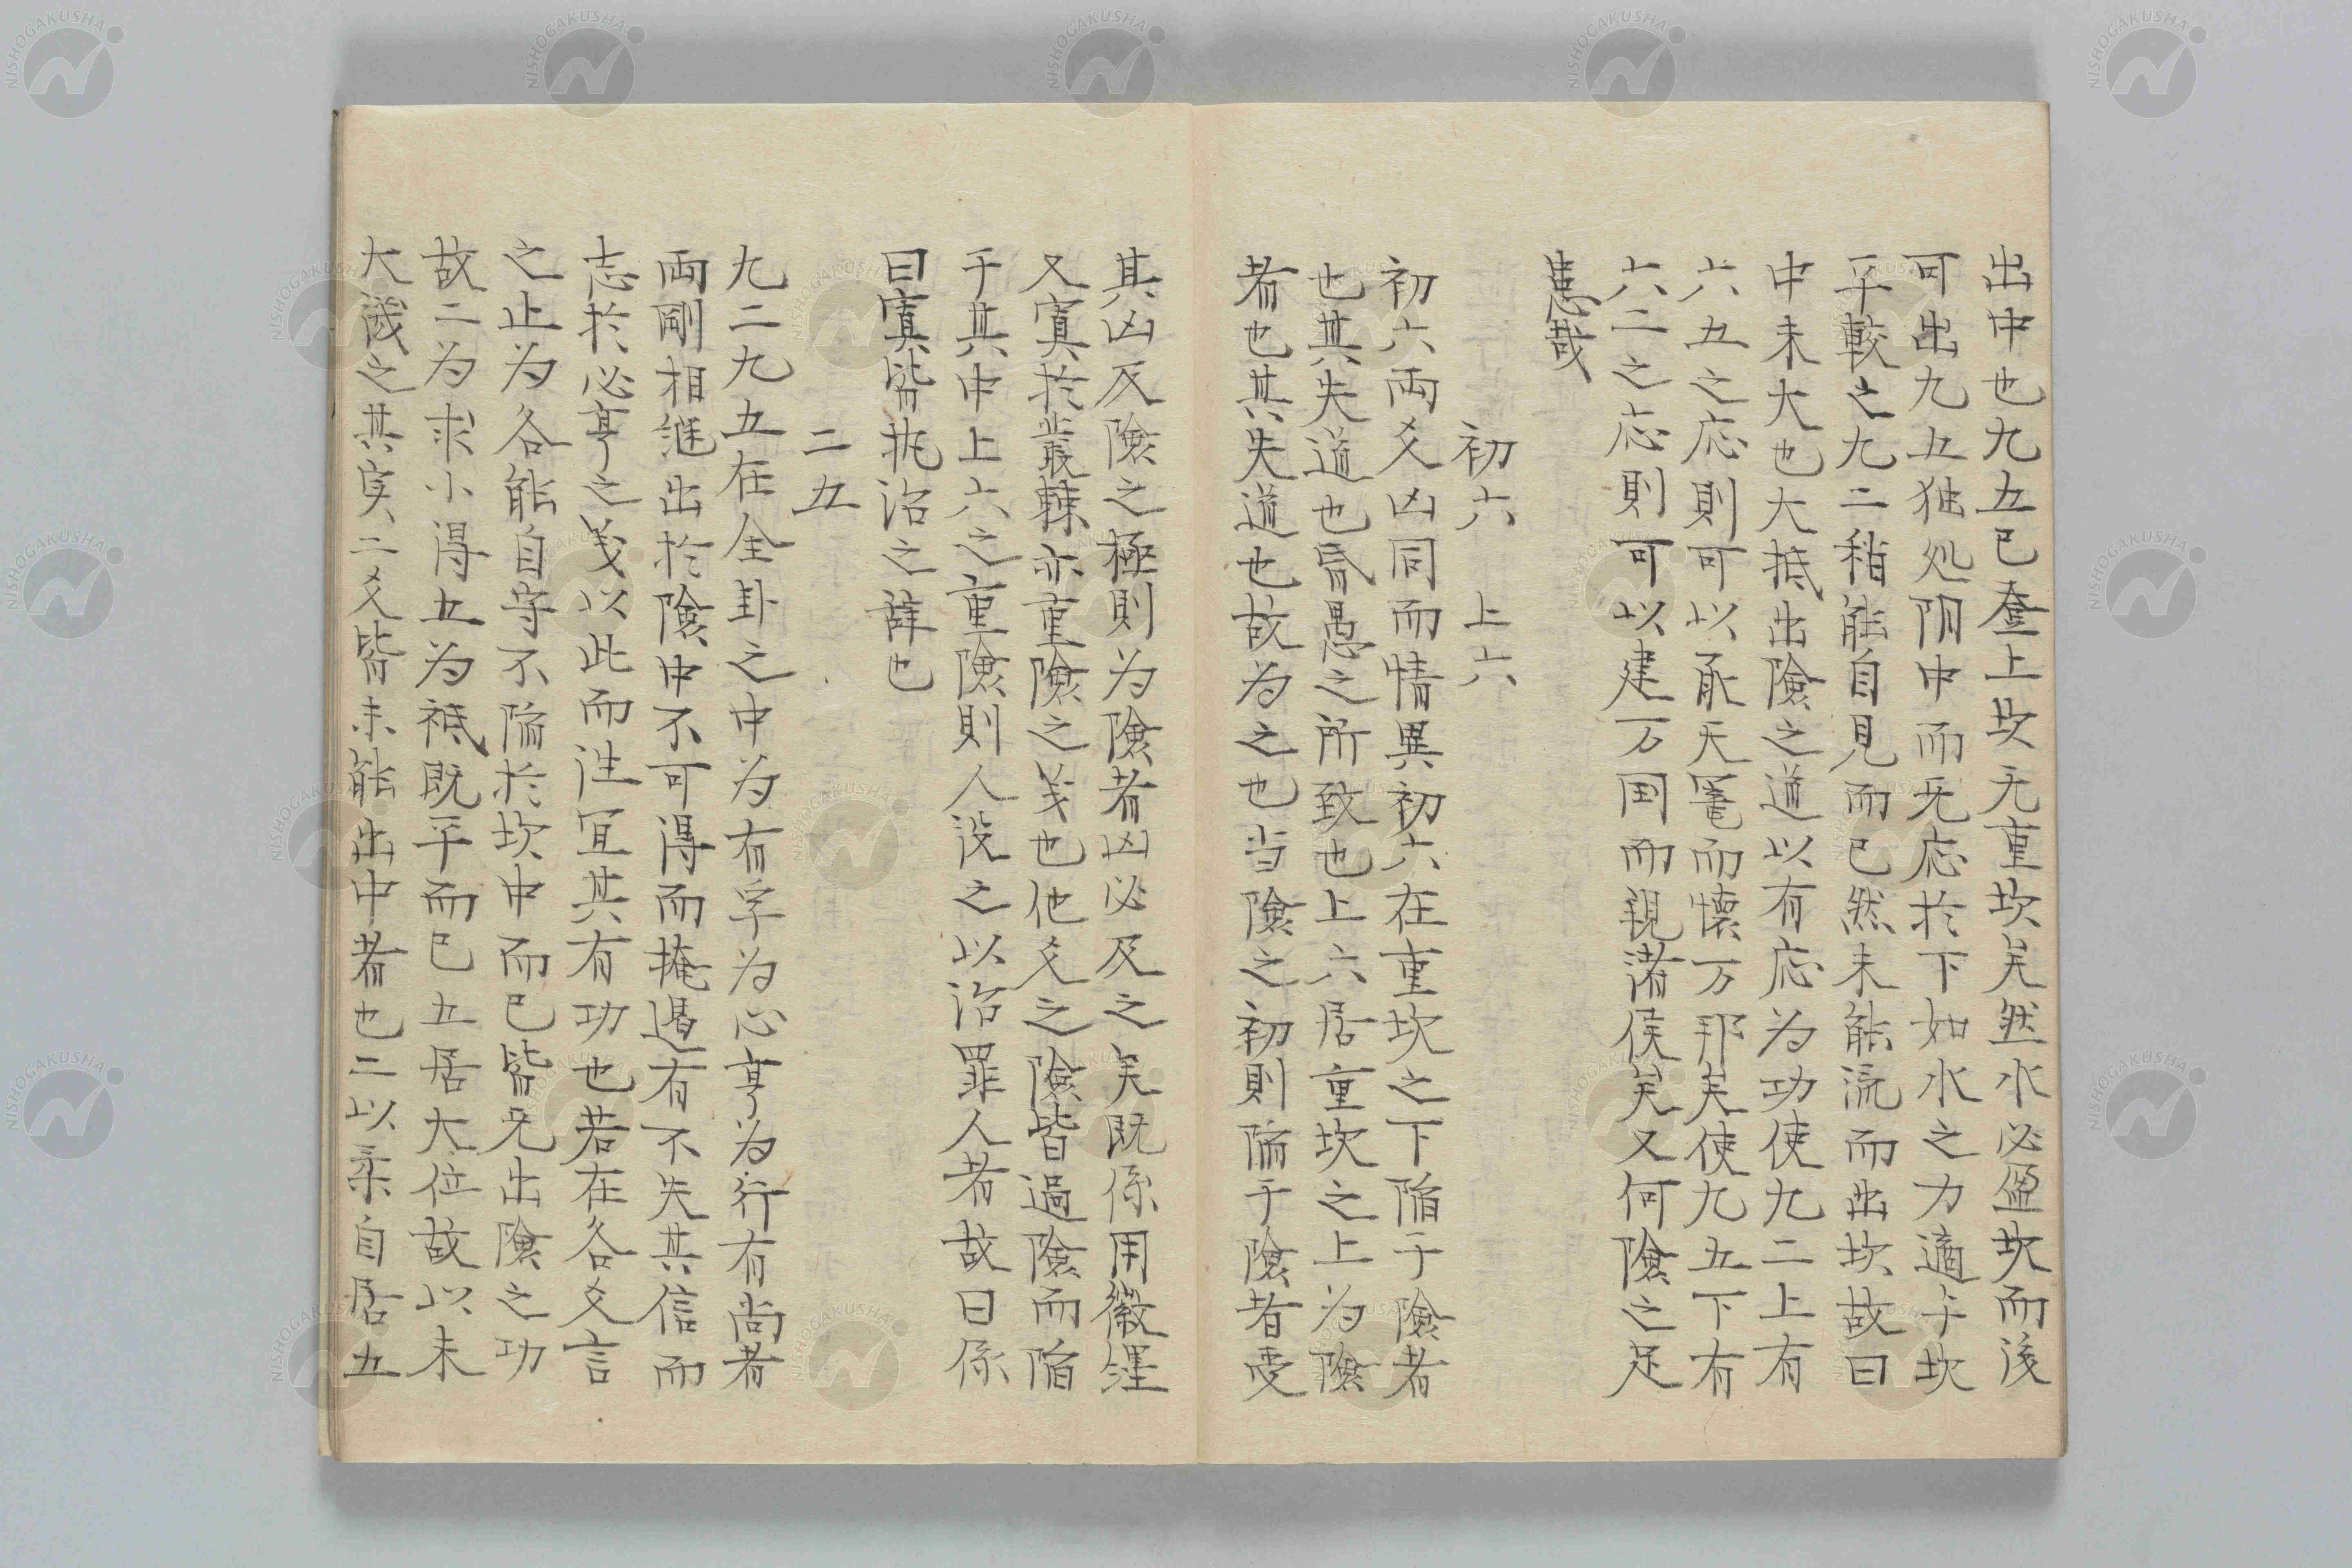 出中也九五已登上坎无重坎矣然水必盈坎而後
可出九五独処阴中而无応於下如水之力適于坎
平較之九二稍能自見而已然未能流而出坎故曰
中未大也大抵出險之道以有応為功使九二上有
六五之応則可以承天寵而懐万邦矣使九五下有
六二之応則可以建万国而親諸侯矣又何險之足
恚哉
初六 上六
初六両爻凶同而情異初六在重坎之下陥于險者
也其失道也昏愚之所致也上六居重坎之上为險
者也其失道也故为之也当險之初則陥于險者受
其凶及險之極則为險者凶必及之矣既係用徽纆
又寘於叢棘亦重險之义也他爻之險皆過險而陥
于其中上六之重險則人設之以治罪人者故曰係
曰寘皆執治之辞也
二五
九二九五在全卦之中为有孚为心亨为行有尚者
両剛相継出於險中不可得而掩遏有不失其信而
志於必亨之义以此而往冝其有功也若在各爻言
之止为各能自守不陥於坎中而已皆无出險之功
故二为求小得五为祗既平而已五居大位故以未
大誡之其実二爻皆未能出中者也二以柔自居五